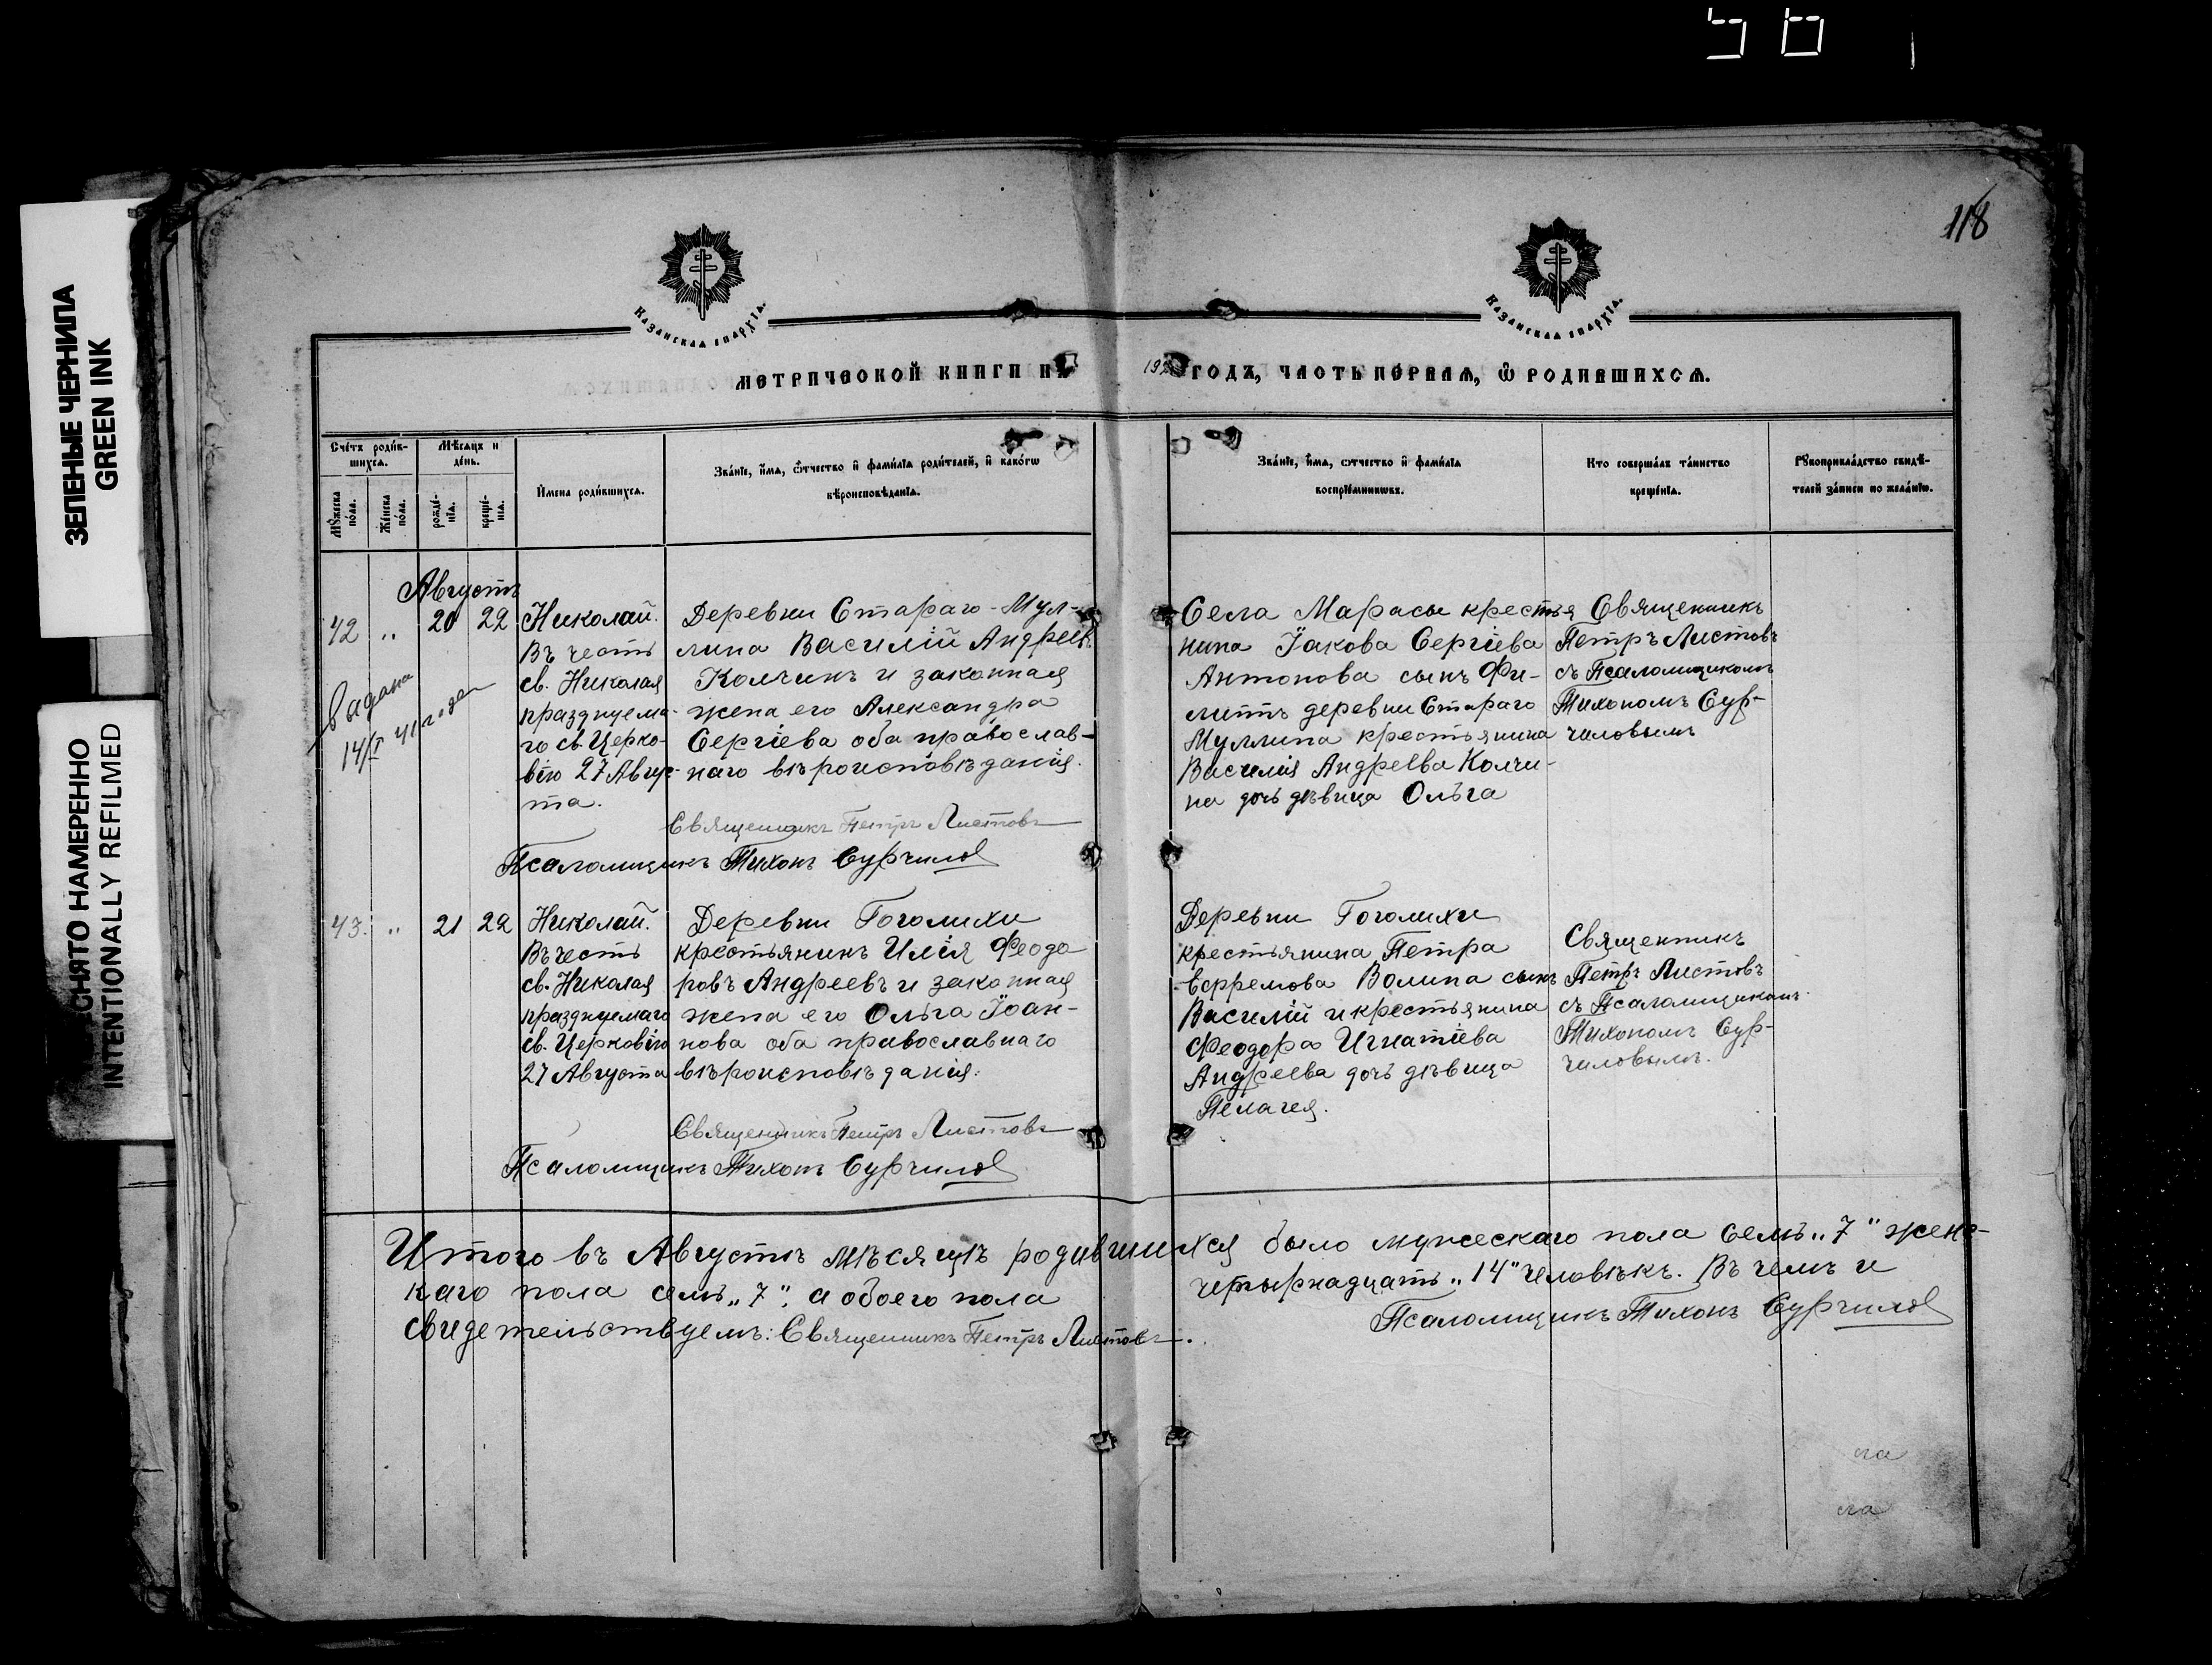 118
ЗЕЛЕНЫЕ ЧЕРНИЛА
GREEN INK
СНЯТО НАМЕРЕННО
INTENTIONALLY REFILMED
КАЗАНСКАѦ ЕПАРХІѦ.
КАЗАНСКАѦ ЕПАРХІѦ.
МЕТРИЧЕСКОЙ КНИГИ НА 19 ГОДЪ, ЧАСТЬ ПЕРВАѦ, Ѿ РОДИВШИХСѦ.
Счетъ родив-
шихсѧ.
Мѣсяцъ и
день.
Мꙋжеска
пола.
Женска
пола.
рожде-
нїѧ.
креще-
нїѧ.
Имена родившихсѧ.
Званїе, имѧ, ѿчество и фамилїѧ родителей, и какогѡ
вѣроисповѣданїѧ.
Званїе, имѧ, отчество и фамилїѧ
воспрїемникѡвъ.
Кто совершалъ таинство
крещенїѧ.
Рꙋкоприкладство свидѣ-
телей записи по желанїю.
Августъ
42 „ 20 22
Выдана
14/I 41 года
Николай.
Въ честь
св. Николая
празднуема-
го св. Церко-
вію 27 Авгус-
та.
Деревни Стараго-Мул-
лина Василій Андреевъ
Колчинъ и законная
жена его Александра
Сергіева оба православ-
наго вѣроисповѣданія.
Священникъ Петръ Листовъ
Псаломщикъ Тихонъ Сурчилов
Села Марасы крестья
нина Іакова Сергіева
Антонова сынъ Фи-
липпъ деревни Стараго
Муллина крестьянина
Василія Андреева Колчи-
на дочь дѣвица Ольга
Священникъ
Петръ Листовъ
съ Псаломщикомъ
Тихономъ Сур-
чиловымъ
43. „ 21 22
Николай.
Въ честь
св. Николая
празднуемаго
св. Церковію
27 Августа
Деревни Гоголихи
крестьянинъ Илія Феодо
ровъ Андреевъ и законная
жена его Ольга Іоан-
нова оба православнаго
вѣроисповѣданія.
Священникъ Петръ Листовъ
Псаломщикъ Тихонъ Сурчилов
Деревни Гоголихи
крестьянина Петра
Ефремова Волина сынъ
Василій и крестьянина
Феодора Игнатіева
Андреева дочь дѣвица
Пелагея.
Священникъ
Петръ Листовъ
съ Псаломщикомъ
Тихономъ Сур-
чиловымъ.
Итого въ Августѣ мѣсяцѣ родившихся было мужескаго пола семь „7" женс-
каго пола семь „7", а обоего пола четырнадцать „14" человѣкъ. Въ чемъ и
свидетельствуемъ: Священникъ Петръ Листовъ. Псаломщикъ Тихонъ Сурчилов